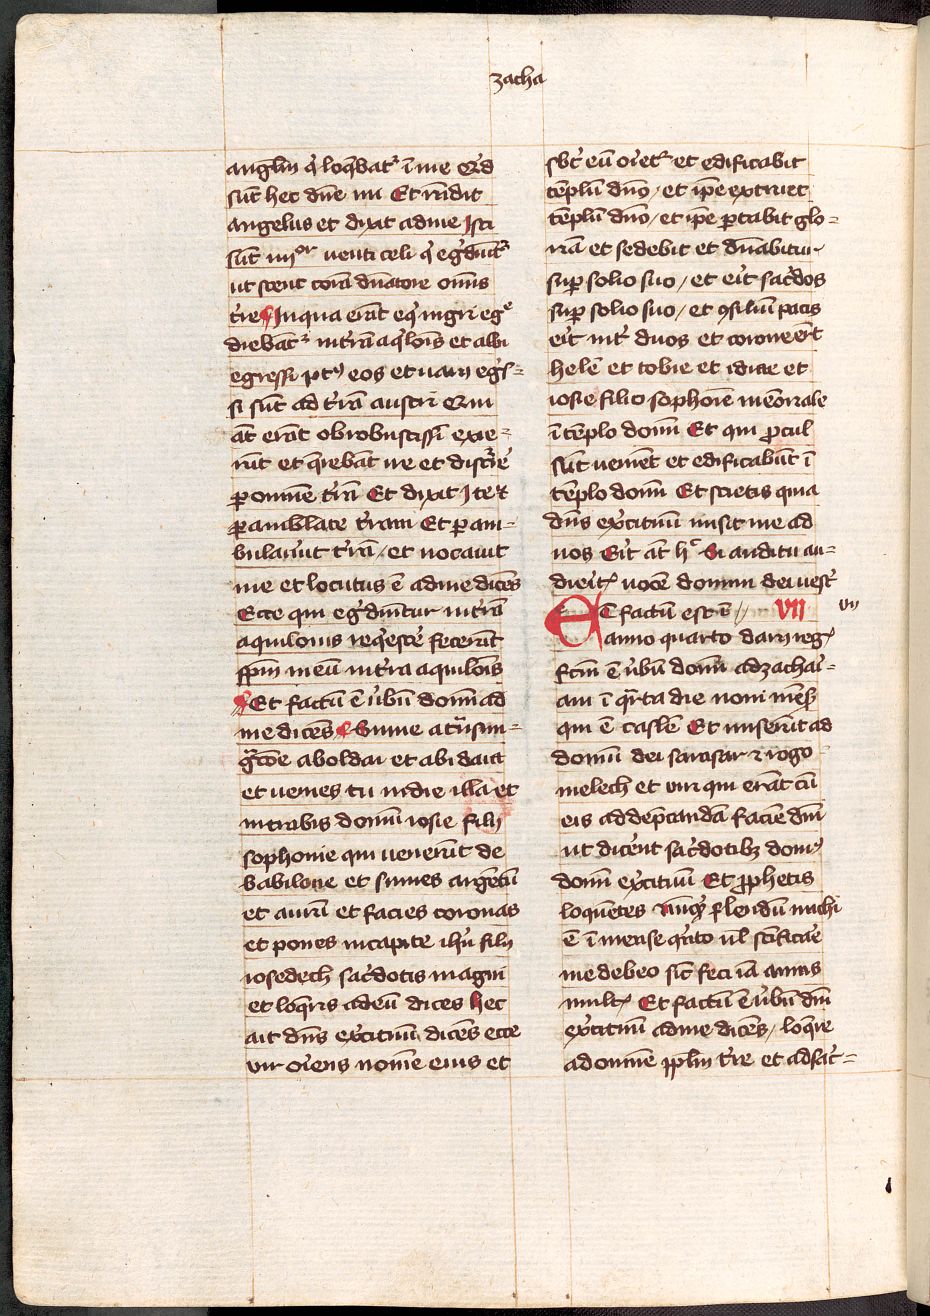 zacha
anglm̄ q̇ loq̄bat᷑ ī me Q̇d
sūt hec dn̄e mi Et rn̄dit
angelus et dixit ad me Isti
sūt iiijor venti celi q̇ eg̾diūt᷑
ut stent corā dn̄atore om̄is
t̾re In qua erāt eq̇ nigri eg̾
diebāt᷑ in t̾rā aq̇lōis et albi
egressi pt᷒ eos et varij eg̾s=
si sūt ad t̾rā austri Qui
āt erāt obrobustissi exie=
rūt et q̄rebāt ire et disc̾re
ꝑ omnē t̾rā Et dixit Ite
ꝑamblate t̾ram Et ꝑam=
bulav̾unt t̾rā / et vocauit
me et locutus ē ad me dicēs
Ecce qui eg̾diūtur in t̾rā
aquilonis reqͥescē fecerūt
sp̄m meū in t̾ra aquilōis
Et factū ē v̾bū domī ad
me dicēs Sume a tͣnsmi=
gͣcōe ab oldai et ab idaia
et venies tu in die illa et
intrabis domū iosie filij
sophonie qui venerūt de
babilone et sumes argētū
et aurū et facies coronas
et pones in capite ih̄u filij
iosedech sac̾dotis magni
et loq̇ris ad eū dices hec
ait dn̄s exc̾ituū dicēs ecce
vir oriēns nomē eius et
sbt̾ eū oriet᷑ et edificabit
tēplū dn̄o / et ip̄e extruet
tēplū dn̄o / et ip̄e portabit glo=
riā et sedebit et dn̄abitur
sup solio suo / et erit sac̾dos
sup solio suo / et ꝯsiliū pacis
erit int̾ duos et corone er̄t
helē et tobie et idaie et
iosie filio sophoīe memōriale
ī tēplo domī Et qui ꝓcul
sūt veniēt et edificabūt ī
tēplo domī Et scietis quia
dn̄s exc̾ituū misit me ad
vos Erit āt hͦ Si auditu au=
dierit᷑ vocē domini dei vest̾
ET factū est ī VII vij
anno quarto darij reg᷑
fcm̄ ē v̾bū domī ad zachaͥ=
am ī qͣrta die noni mēs᷑
qui ē caslē Et miserūt ad
domū dei sarasar ⁊ rogo
melech et viri qui erāt cū
eo ad dep̄candā faciē dn̄i
ut dicērnt sac̾dotibꝫ dom᷒
domī exc̾ituū Et ꝓphetis
loquētes Nūqͥd flendū michi
ē ī mense qͥnto ul̄ scīficāe
me debeo sic̄ feci iā annis
mult᷑ Et factū ē v̾bū dn̄i
exc̾ituū ad me dicēs / loq̄re
ad omnē ꝓplm̄ t̾re et ad sac̾=